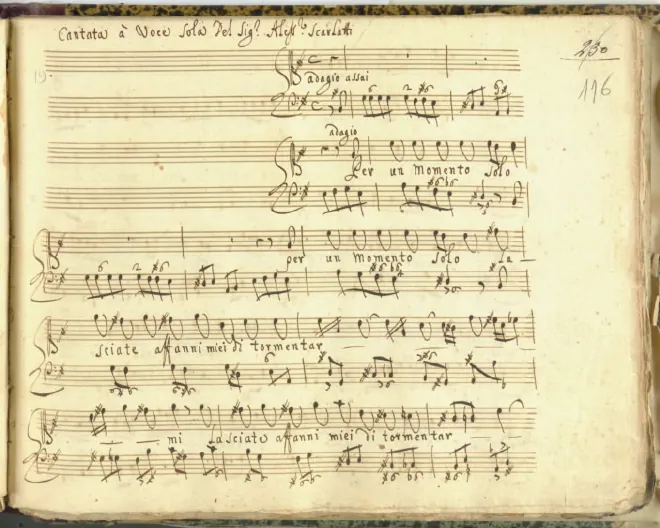 Cantata à Voce Sola Del Sig.r Aless.o Scarlatti
230
196
19.
adagio assai
adagio
Per un Momento Solo
per un Momento Solo la -
sciate affanni miei di tormentar
mi lasciate affanni miei di tormentar